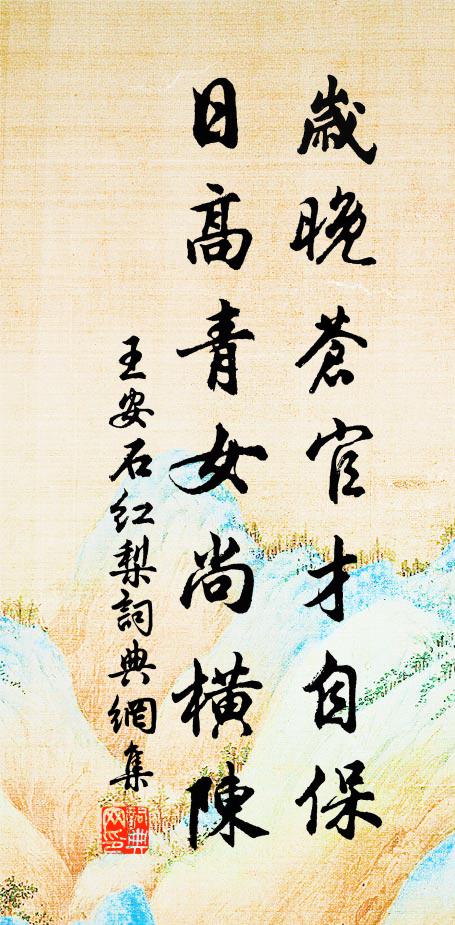 歲晚蒼官才自保
日高青女尚橫陳
王安石紅梨詞典網集
詞典
网印